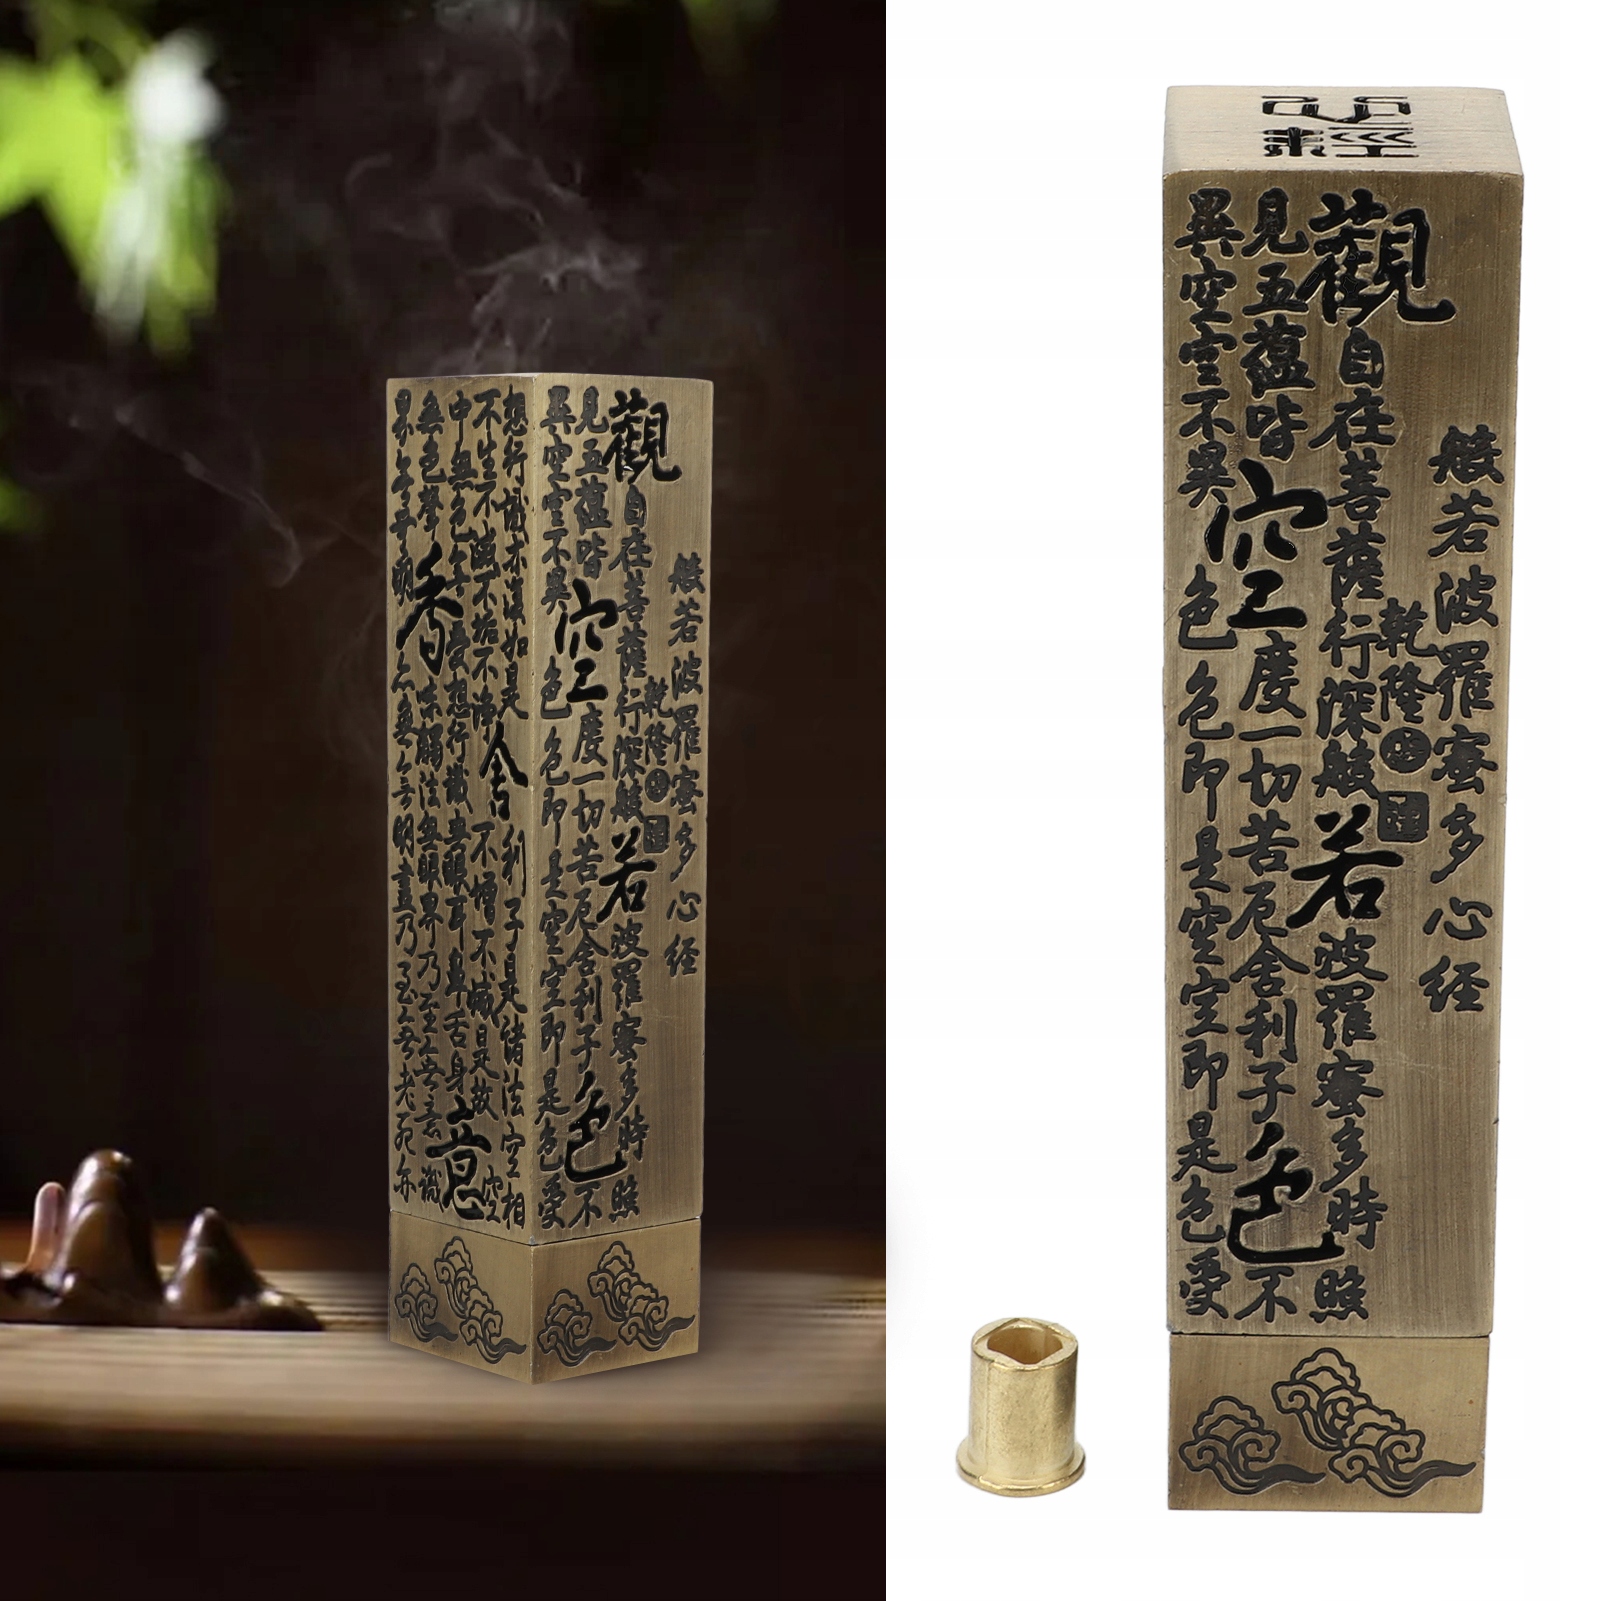 般若波羅蜜多心经
乾隆
觀自在菩薩行深般若波羅蜜多時照
見五蘊皆空度一切苦厄舍利子色不
異空空不異色色即是空空即是色受
想行識亦復如是舍利子是諸法空相
不生不滅不垢不淨不增不減是故空
中無色無受想行識無眼耳鼻舌身意
無色聲香味觸法無眼界乃至無意識
界無無明亦無無明盡乃至無老死亦
心經
般若波羅蜜多心经
乾隆
觀自在菩薩行深般若波羅蜜多時照
見五蘊皆空度一切苦厄舍利子色不
異空空不異色色即是空空即是色受